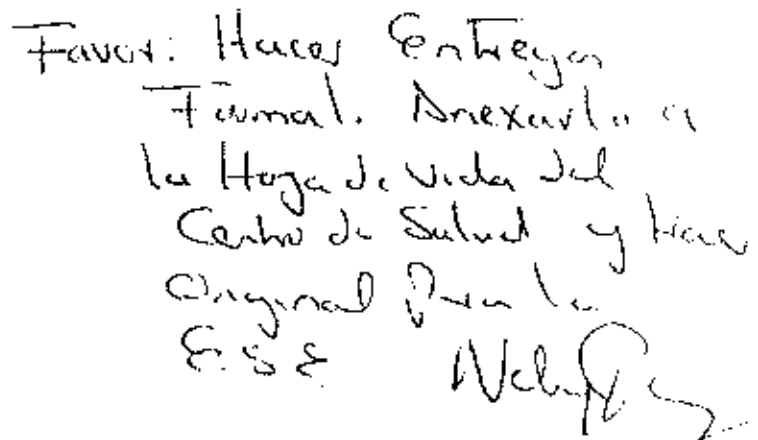 Favor: Hacer Entrega
Formal. Anexarlo a
la Hoja de vida del
Centro de Salud y traer
Original Para la
E.S.E